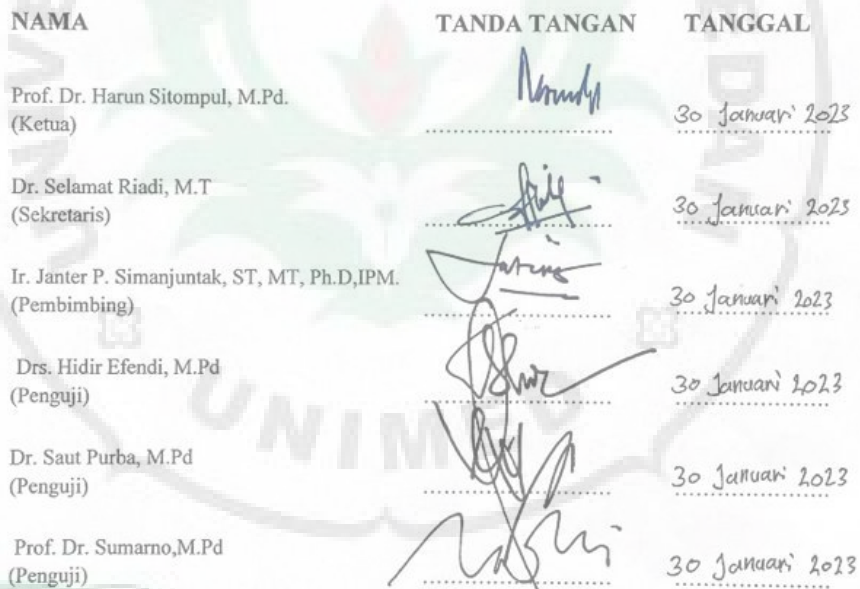 NAMA TANDA TANGAN TANGGAL
Prof. Dr. Harun Sitompul, M.Pd.
(Ketua) 30 Januari 2023
Dr. Selamat Riadi, M.T
(Sekretaris) 30 Januari 2023
Ir. Janter P. Simanjuntak, ST, MT, Ph.D,IPM.
(Pembimbing) 30 Januari 2023
Drs. Hidir Efendi, M.Pd
(Penguji) 30 Januari 2023
Dr. Saut Purba, M.Pd
(Penguji) 30 Januari 2023
Prof. Dr. Sumarno,M.Pd
(Penguji) 30 Januari 2023
UNIMED